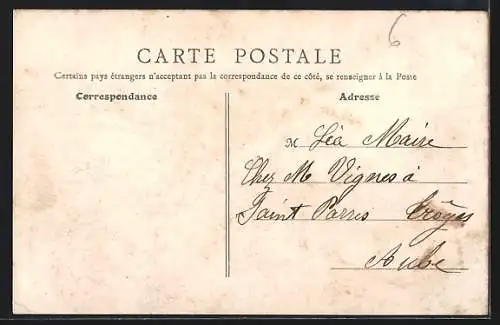 6
CARTE POSTALE
Certains pays étrangers n'acceptant pas la correspondance de ce côté, se renseigner à la Poste
Correspondance
Adresse
M Léa Maire
Chez Mr Vignes à
Saint Parres Troyes
Aube